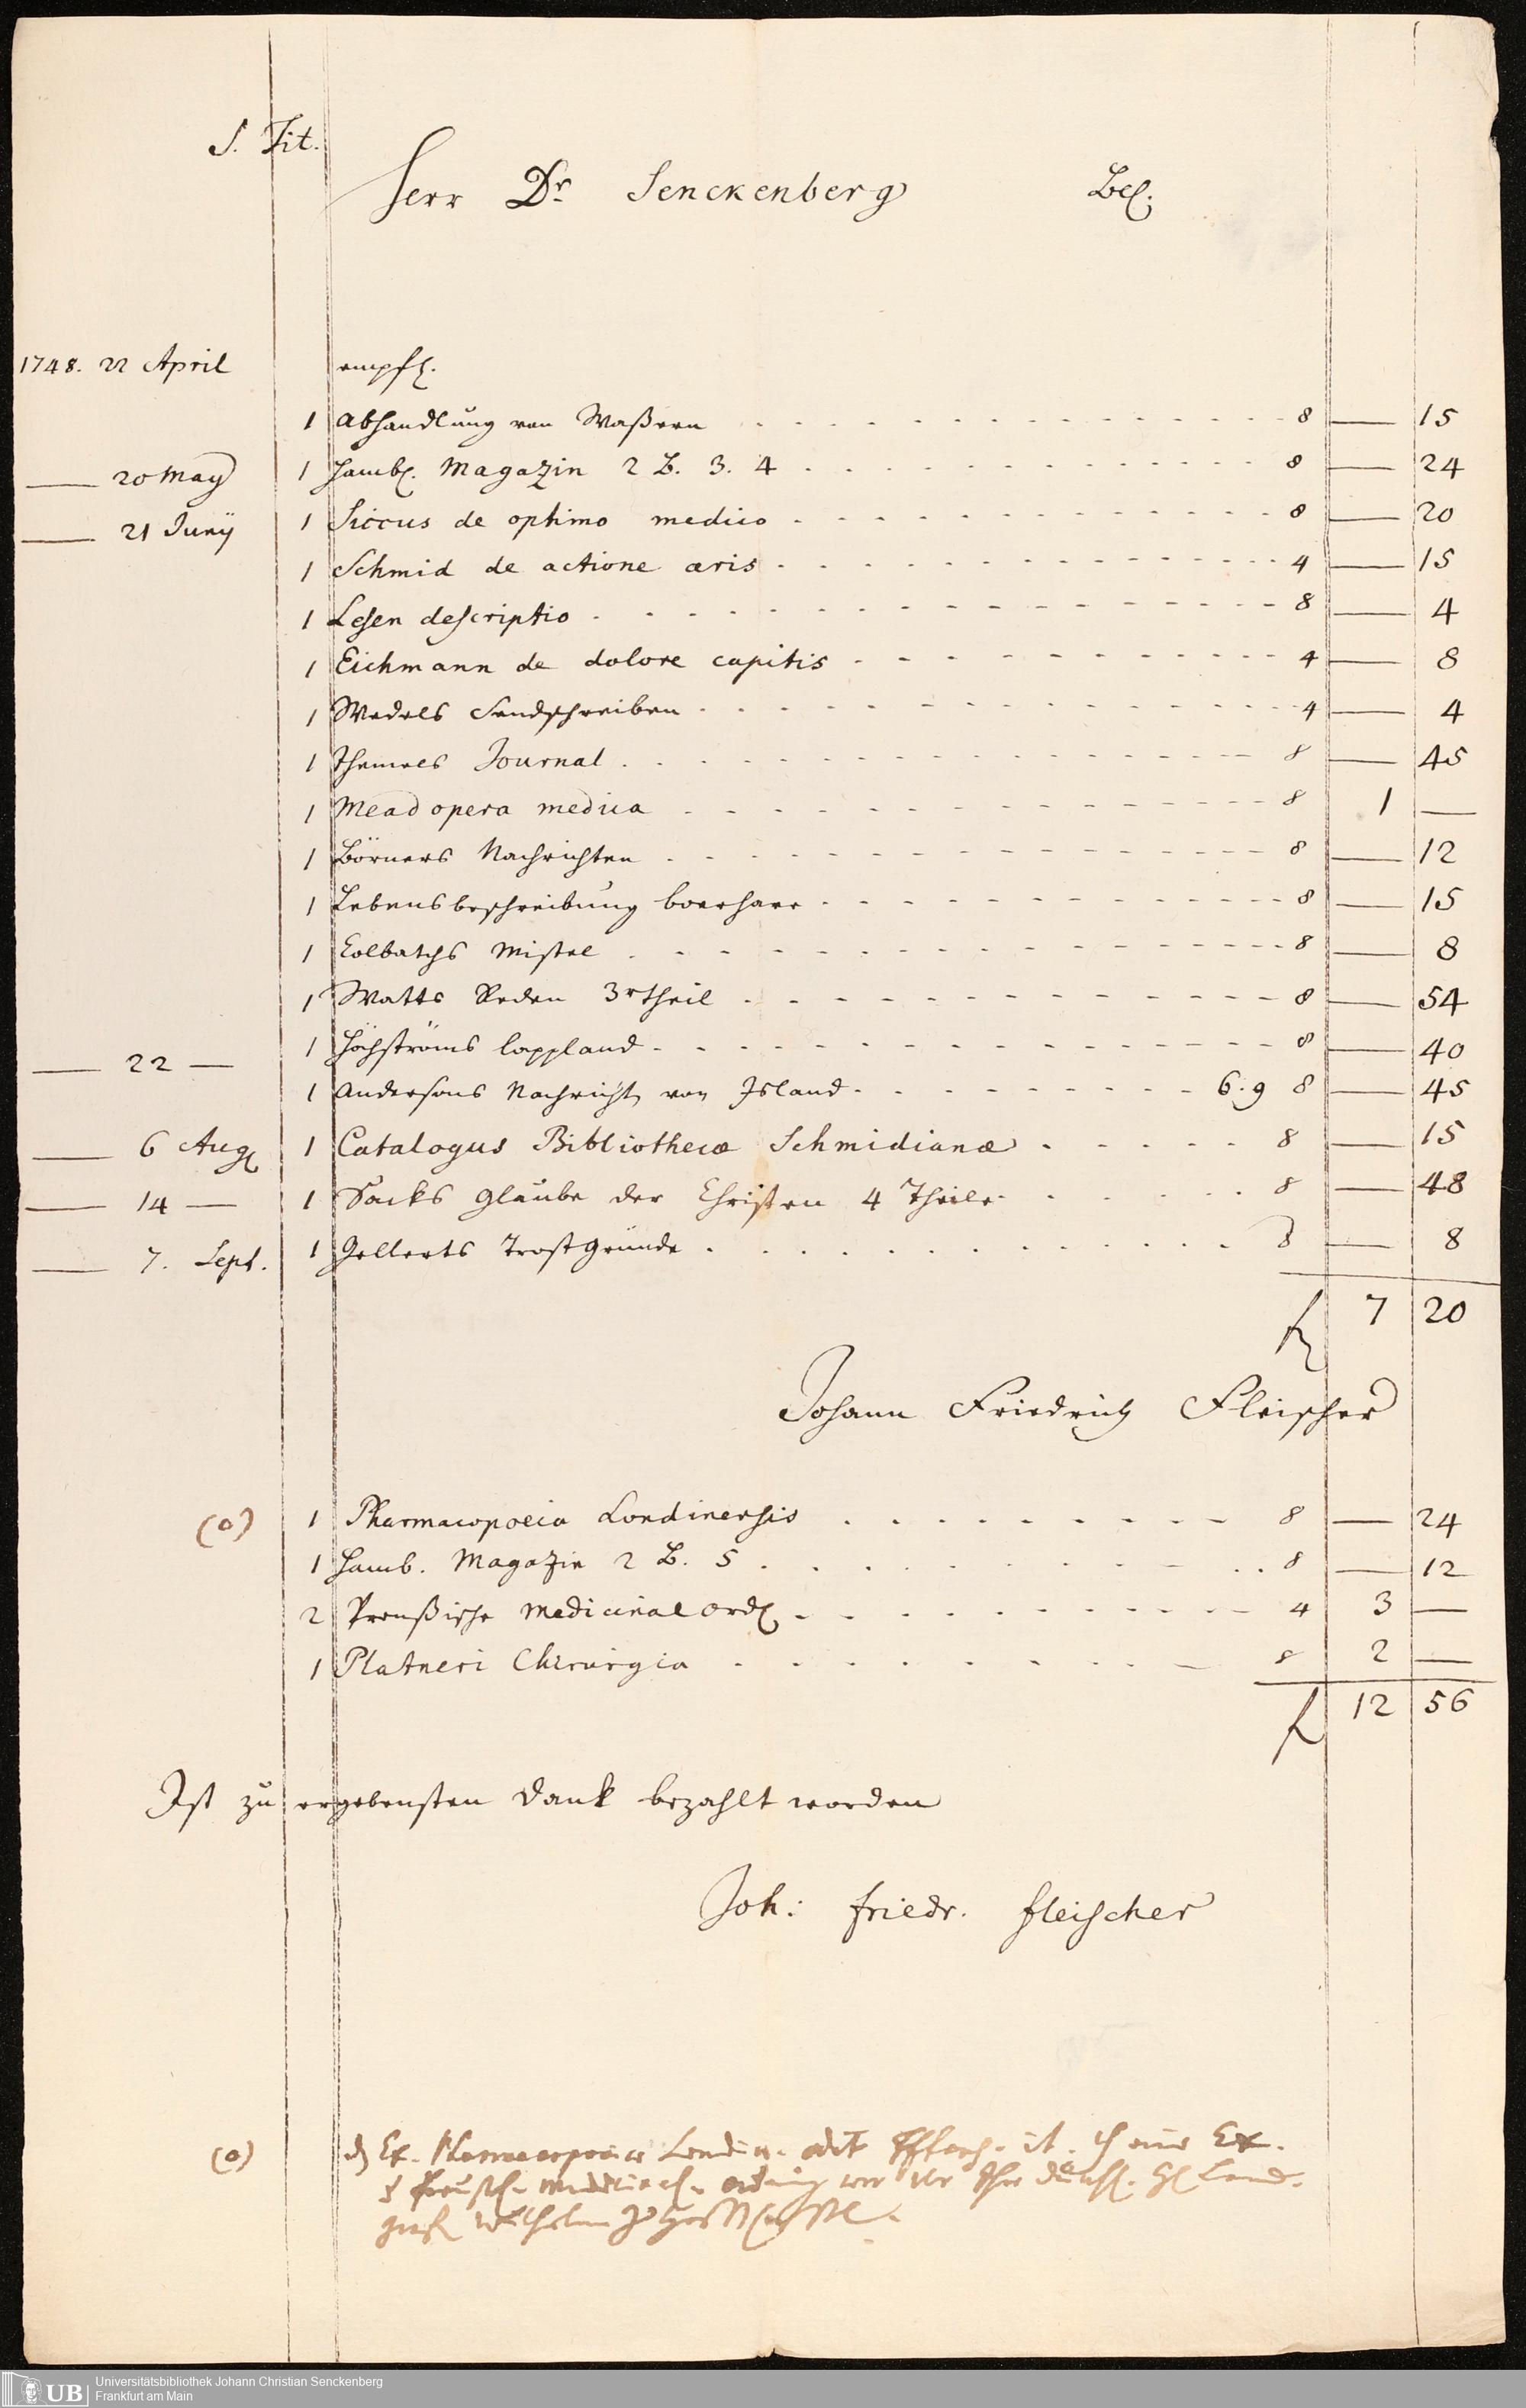 S. Tit.
Herr Dr Senckenberg Bel.
1748. 22 April empf.
1 Abhandlung von Waßern 8 — 15
— 20 May 1 Hamb. Magazin 2 B. 3. 4 8 — 24
— 21 Junÿ 1 Siccus de optimo medico 8 — 20
1 Schmid de actione æris 4 — 15
1 Lesen descriptio 8 — 4
1 Eichmann de dolore capitis 4 — 8
1 Wedels Sendschreiben 4 — 4
1 Themels Journal 8 — 45
1 Mead opera medica 8 1 —
1 Börners Nachrichten 8 — 12
1 Lebensbeschreibung boerhave 8 — 15
1 Colbatchs Mistel 8 — 8
1 Watts Reden 3r Theil 8 — 54
— 22 — 1 Höchströms lappland 8 — 40
1 Andersons Nachricht von Island 6. 9 8 — 45
— 6 Aug 1 Catalogus Bibliothecæ Schmidianæ 8 — 15
— 14 — 1 Sacks Glaube der Christen 4 Theile 8 — 48
— 7. Sept. 1 Gellerts Trostgründe 8 — 8
f 7 20
Johann Friedrich Fleischer
(o) 1 Pharmacopoeia Londinensis 8 — 24
1 Hamb. Magazin 2 B. 5 8 — 12
2 Preußische Medicinal Ord. 4 3 —
1 Platneri Chirurgia 8 2 —
f 12 56
Ist zu ergebensten Dank bezahlt worden
Joh: Friedr. Fleischer
(o) Ex. Pharmacopoeiæ Londin. Ex.
Land-
graf Wilhelm
UB Universitätsbibliothek Johann Christian Senckenberg
Frankfurt am Main